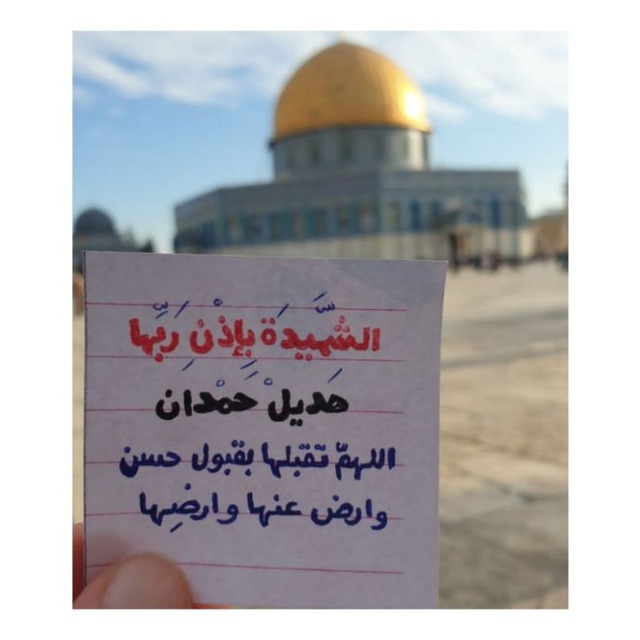 الشَّهِيدَة بِإِذْنِ رَبِّها
هَديلْ حَمْدان
اللهمّ تقبلها بقبول حسن
وارض عنها وارضِها